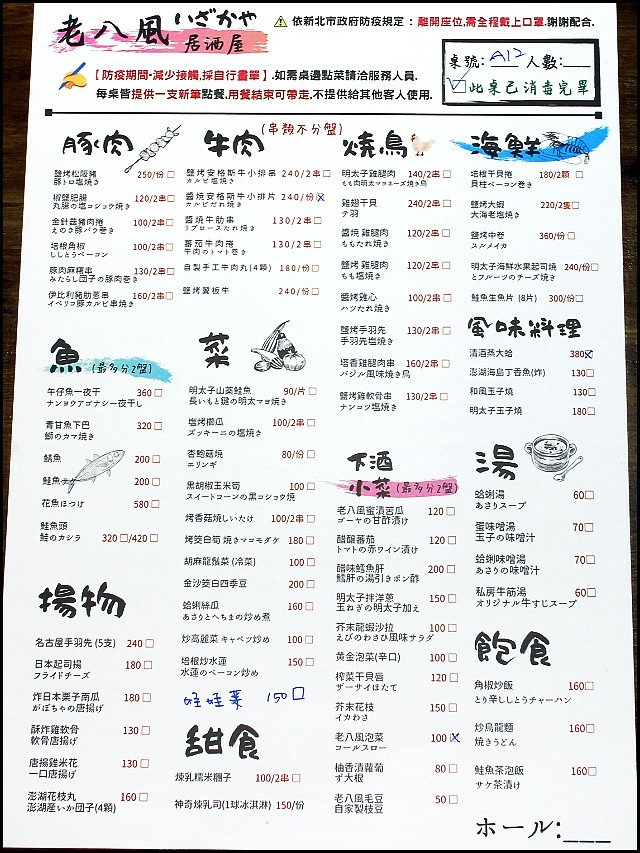 老八風 いざかや
居酒屋
⚠ 依新北市政府防疫規定：離開座位,需全程戴上口罩.謝謝配合.
【防疫期間-減少接觸,採自行畫單】.如需桌邊點菜請洽服務人員.
每桌皆提供一支新筆點餐,用餐結束可帶走,不提供給其他客人使用.
桌號: A12 人數:___
☑此桌已消毒完畢
豚肉
鹽烤松阪豬 250/份□
豚トロ塩焼き
椒鹽肥腸 120/2串□
丸腸の塩コショウ焼き
金針菇豬肉捲 100/2串□
えのき豚バラ巻き
培根角椒 100/2串□
ししとうベーコン
豚肉麻糬串 130/2串□
みたらし団子の豚肉巻き
伊比利豬肋蔥串 160/2串□
イベリコ豚カルビ串焼き
牛肉
(串類不分盤)
鹽烤安格斯牛小排串 240/2串□
カルビ塩焼き
醬燒安格斯牛小排片 240/份☒
カルビだれ焼き
醬燒牛肋串 130/2串□
リブロースたれ焼き
蕃茄牛肉捲 130/2串□
牛肉のトマト巻き
自製手工牛肉丸(4顆) 180/份□
鹽烤翼板牛 240/份□
燒鳥
明太子雞腿肉 140/2串□
もも肉明太マヨネーズ焼き鳥
雞翅干貝 240/2串□
テ羽
醬燒 雞腿肉 120/2串□
ももたれ焼き
鹽烤 雞腿肉 120/2串□
もも塩焼き
鹽烤雞心 100/2串□
ハツたれ焼き
鹽烤手羽先 130/2串□
手羽先塩焼き
塔香雞腿肉串 160/2串□
バジル風味焼き鳥
鹽烤雞軟骨串 130/2串□
ナンコツ塩焼き
海鮮
培根干貝捲 180/2顆 □
貝柱ベーコン巻き
鹽烤大蝦 220/2隻□
大海老塩焼き
鹽烤中卷 360/份□
スルメイカ
明太子海鮮水果起司燒 240/份□
とフルーツのチーズ焼き
鮭魚生魚片 (8片) 300/份□
風味料理
清酒蒸大蛤 380☒
澎湖海島丁香魚(炸) 130□
和風玉子燒 130□
明太子玉子燒 180□
魚 (最多分2盤)
午仔魚一夜干 360□
ナンヨウアゴナシ一夜干し
青甘魚下巴 320□
鰤のカマ焼き
鯖魚 200□
鮭魚 200□
花魚ほつけ 580□
鮭魚頭
鮭のカシラ 320□/420□
菜
明太子山藥鮭魚 90/片□
長いもと鮭の明太マヨ焼き
塩烤櫛瓜 100/2串□
ズッキーニの塩焼き
杏鮑菇燒 80/份□
エリンギ
黑胡椒玉米筍 100□
スイートコーンの黒コショウ焼
烤香菇燒しいたけ 100/2串□
烤筊白筍 焼きマコモダケ 180□
胡麻龍鬚菜 (冷菜) 100□
金沙筊白四季豆 200□
蛤蜊絲瓜 160□
あさりとへちまの炒め煮
炒高麗菜 キャベツ炒め 100□
培根炒水蓮 150□
水蓮のベーコン炒め
娃娃菜 150□
下酒小菜 (最多分2盤)
老八風蜜漬苦瓜 120□
ゴーヤの甘酢漬け
醋釀蕃茄 120□
トマトの赤ワイン漬け
醋味鱈魚肝 200□
鱈肝の湯引きポン酢
明太子拌洋蔥 150□
玉ねぎの明太子加え
芥末龍蝦沙拉 100□
えびのわさび風味サラダ
黃金泡菜(辛口) 100□
榨菜干貝唇 120□
ザーサイほたて
芥末花枝 150□
イカわさ
老八風泡菜 100☒
コールスロー
柚香漬蘿蔔 80□
ず大根
老八風毛豆 50□
自家製枝豆
湯
蛤蜊湯 60□
あさりスープ
蛋味噌湯 70□
玉子の味噌汁
蛤蜊味噌湯 70□
あさりの味噌汁
私房牛筋湯 60□
オリジナル牛すじスープ
揚物
名古屋手羽先 (5支) 240□
日本起司揚 180□
フライドチーズ
炸日本栗子南瓜 180□
がぼちゃの唐揚げ
酥炸雞軟骨 130□
軟骨唐揚げ
唐揚雞米花 130□
一口唐揚げ
澎湖花枝丸 160□
澎湖産いか団子(4顆)
甜食
煉乳糯米糰子 100/2串□
神奇煉乳司(1球冰淇淋) 150/份
飽食
角椒炒飯 160□
とり辛ししとうチャーハン
炒烏龍麵 160□
焼きうどん
鮭魚茶泡飯 160□
サケ茶漬け
ホール:___